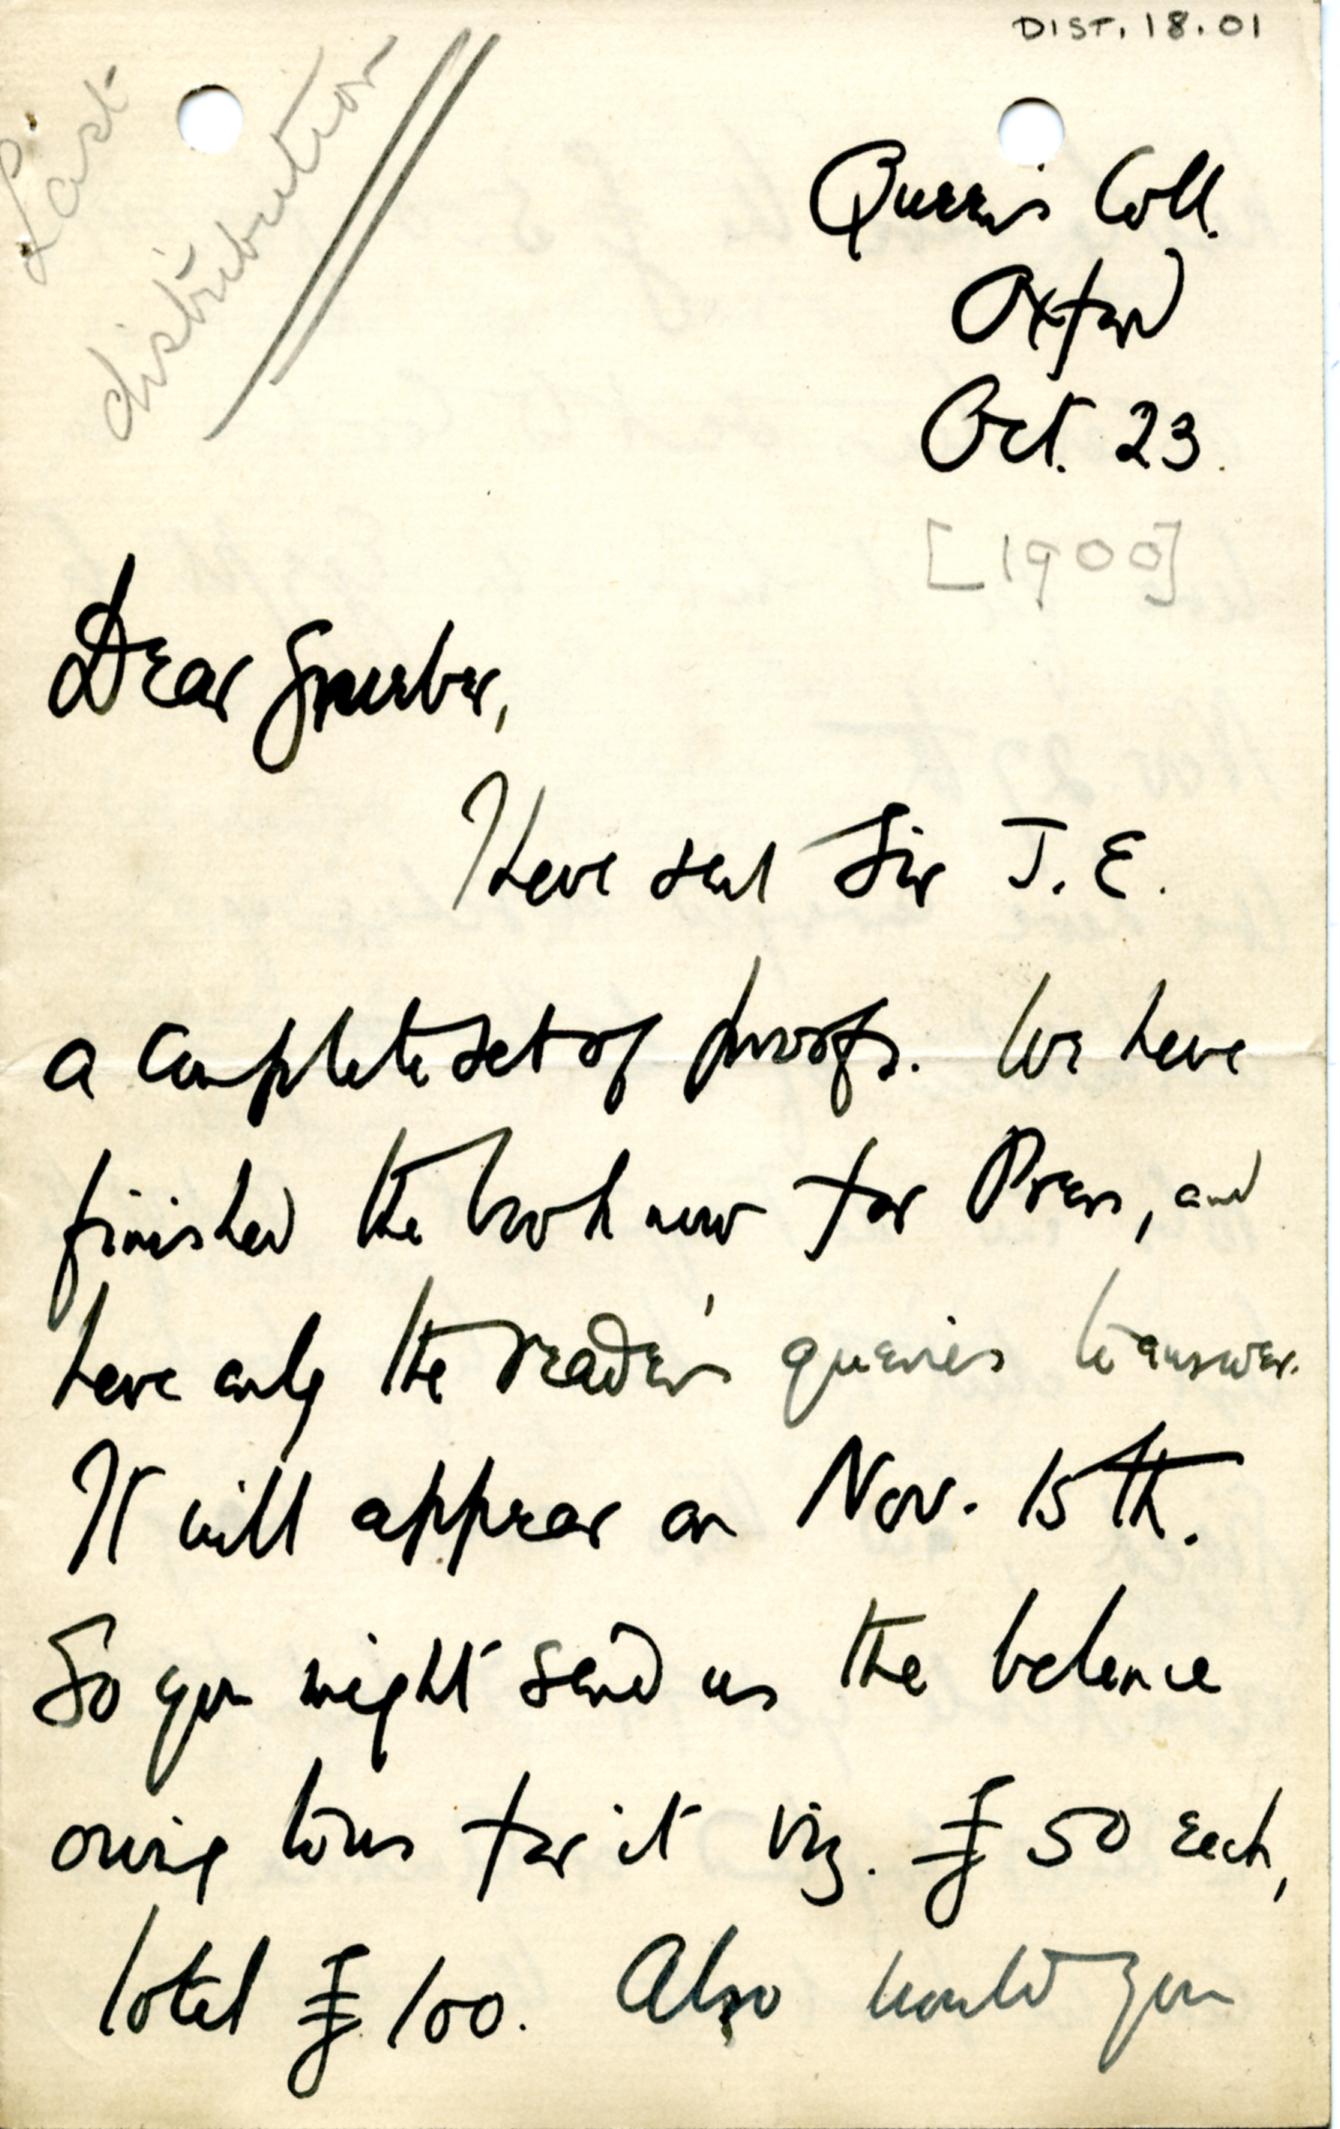 DIST. 18.01
Last
distribution
Queen's Coll.
Oxford
Oct. 23.
[1900]
Dear Grueber,
Have sent Sir J. E.
a complete set of proofs. We have
finished the book now for Press, and
have only the reader's queries to answer.
It will appear on Nov. 15th.
So you might send us the balance
owing to us for it viz. £50 each,
total £100. Also would you